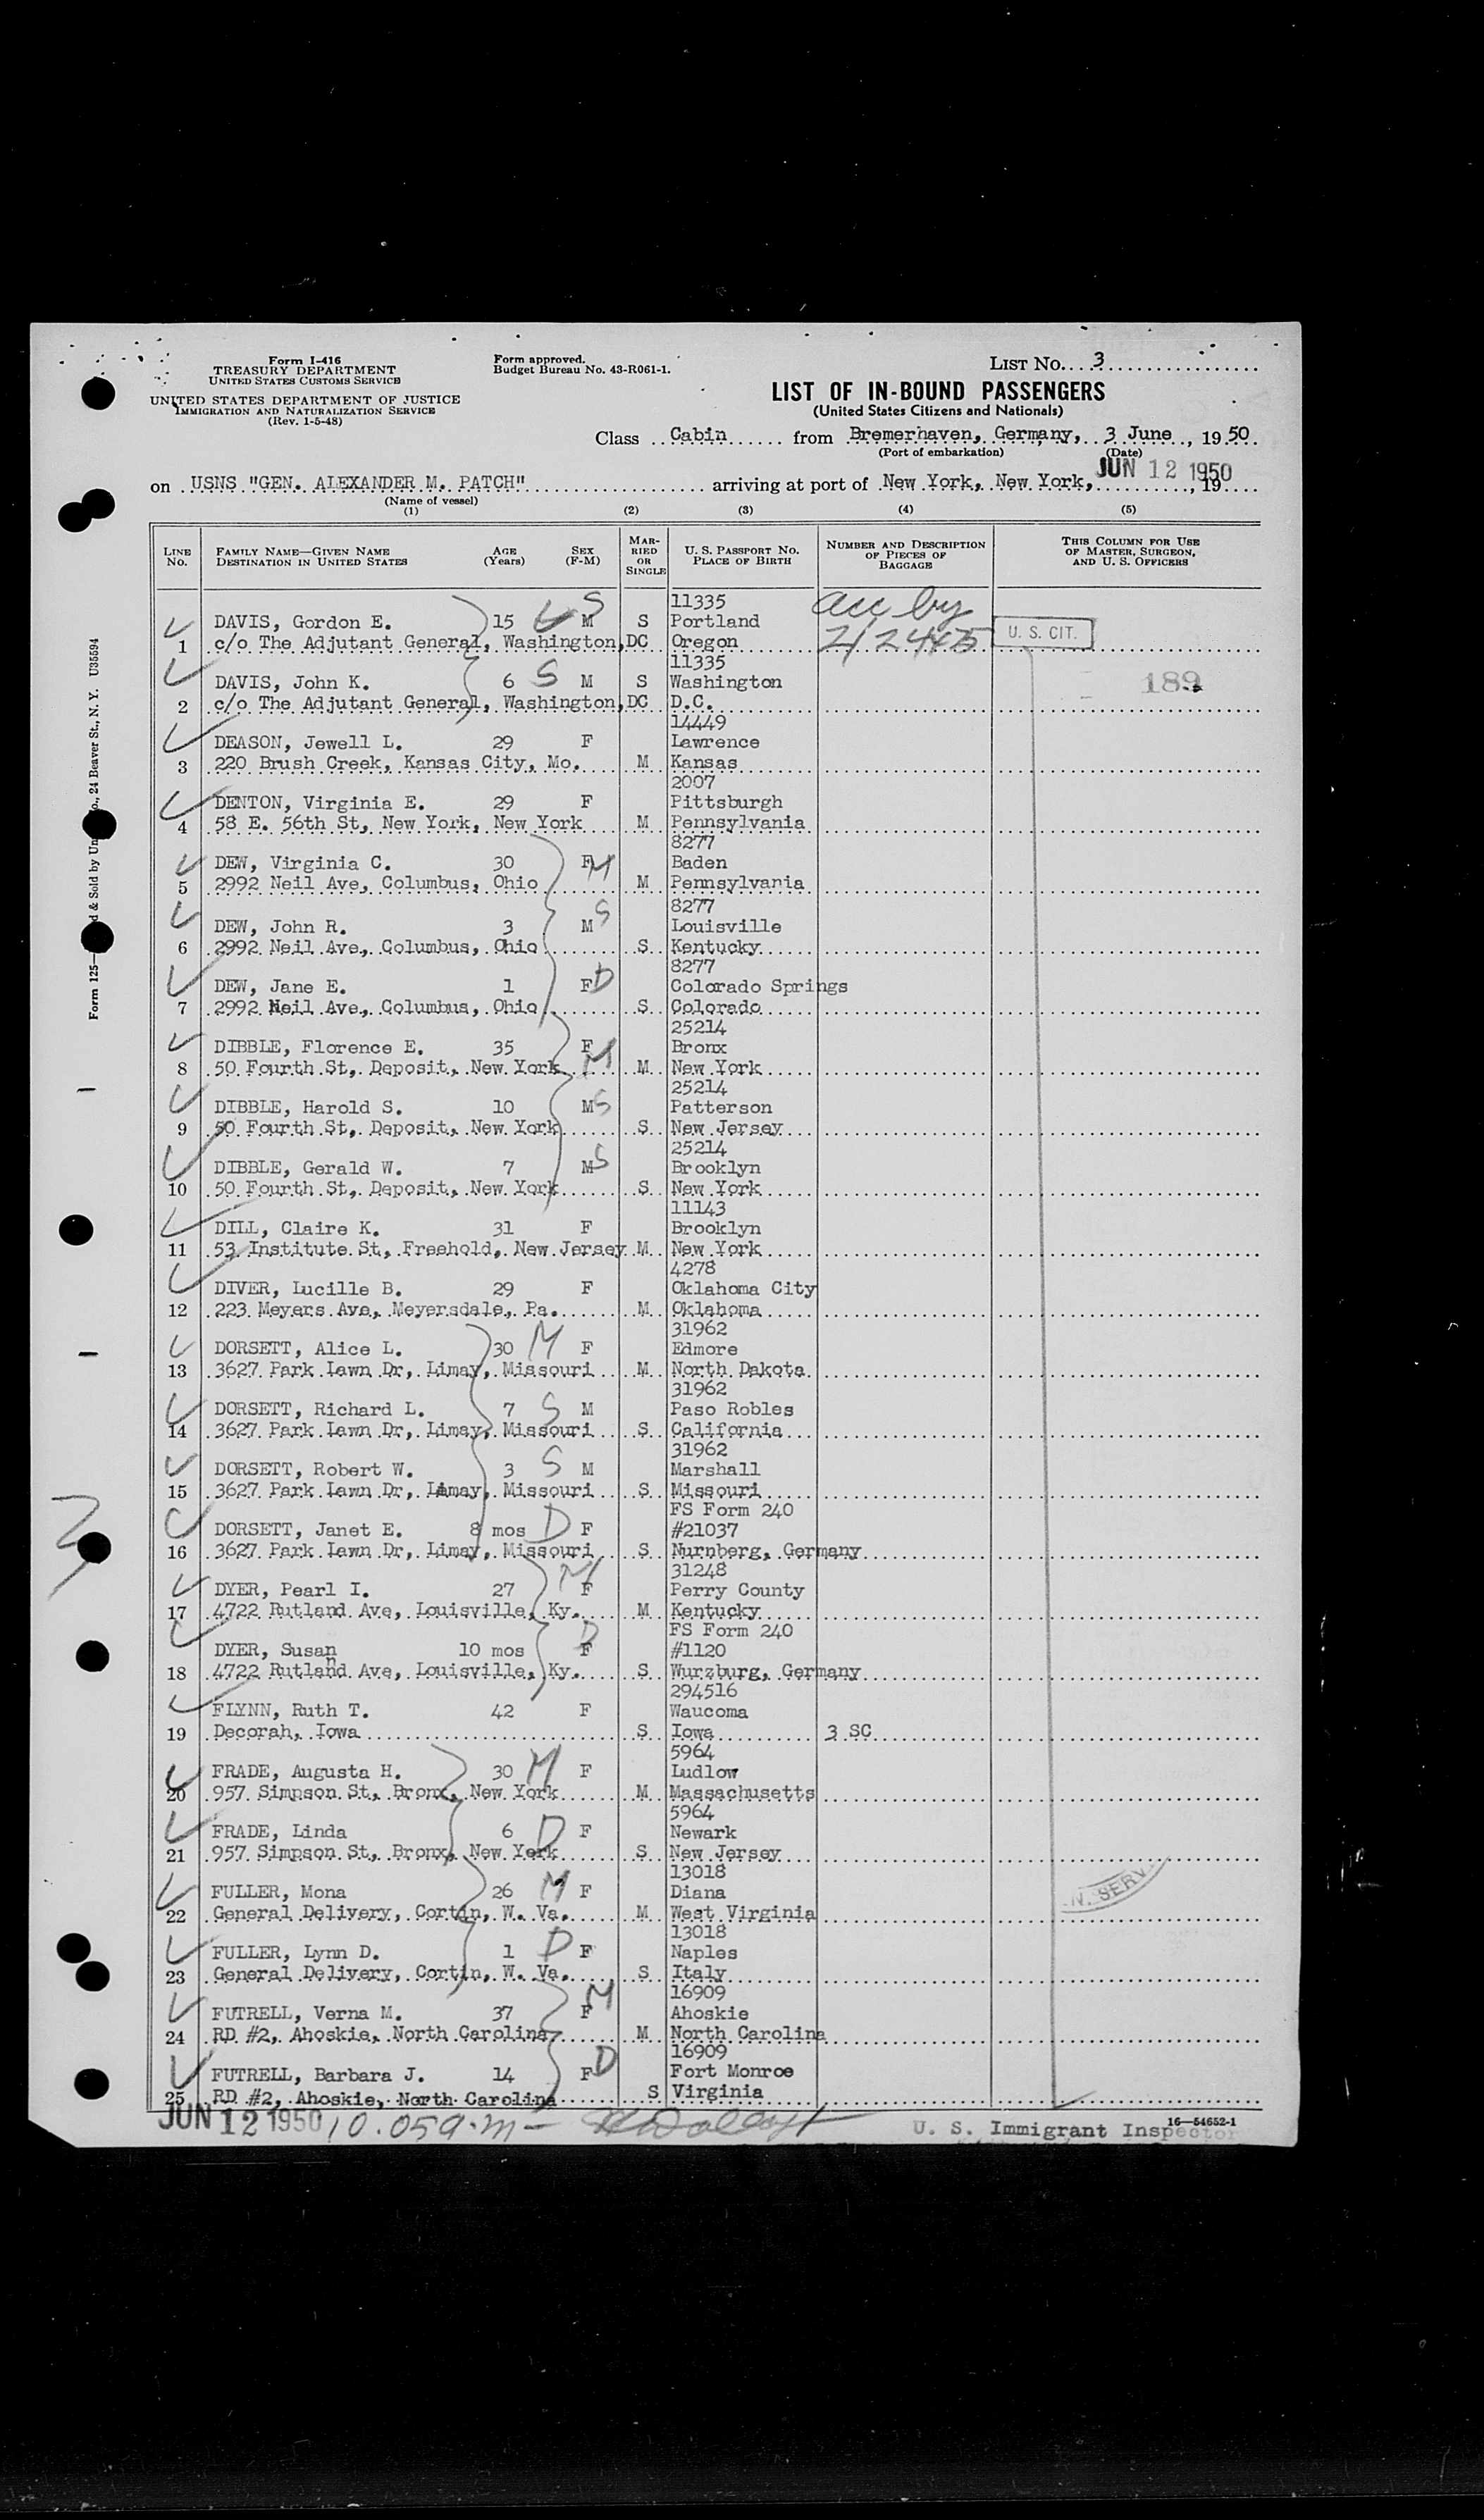 Form I-416
TREASURY DEPARTMENT
UNITED STATES CUSTOMS SERVICE
UNITED STATES DEPARTMENT OF JUSTICE
IMMIGRATION AND NATURALIZATION SERVICE
(Rev. 1-5-48)
Form approved.
Budget Bureau No. 43-R061-1.
LIST NO. 3
LIST OF IN-BOUND PASSENGERS
(United States Citizens and Nationals)
Class Cabin from Bremerhaven, Germany, 3 June, 1950.
(Port of embarkation) (Date)
JUN 12 1950
on USNS "GEN. ALEXANDER M. PATCH" arriving at port of New York, New York, , 19
(Name of vessel)
(1) (2) (3) (4) (5)
LINE No. FAMILY NAME—GIVEN NAME DESTINATION IN UNITED STATES AGE (Years) SEX (F-M) MARRIED OR SINGLE U. S. PASSPORT No. PLACE OF BIRTH NUMBER AND DESCRIPTION OF PIECES OF BAGGAGE THIS COLUMN FOR USE OF MASTER, SURGEON, AND U. S. OFFICERS
11335 acc by
DAVIS, Gordon E. 15 S M S Portland
1 c/o The Adjutant General, Washington, DC Oregon 2/2445 U. S. CIT.
11335
DAVIS, John K. 6 S M S Washington 189
2 c/o The Adjutant General, Washington, DC D.C.
14449
DEASON, Jewell L. 29 F Lawrence
3 220 Brush Creek, Kansas City, Mo. M Kansas
2007
DENTON, Virginia E. 29 F Pittsburgh
4 58 E. 56th St, New York, New York M Pennsylvania
8277
DEW, Virginia C. 30 F M Baden
5 2992 Neil Ave, Columbus, Ohio M Pennsylvania
8277
DEW, John R. 3 M S Louisville
6 2992 Neil Ave, Columbus, Ohio S Kentucky
8277
DEW, Jane E. 1 F D Colorado Springs
7 2992 Neil Ave, Columbus, Ohio S Colorado
25214
DIBBLE, Florence E. 35 F M Bronx
8 50 Fourth St, Deposit, New York M New York
25214
DIBBLE, Harold S. 10 M S Patterson
9 50 Fourth St, Deposit, New York S New Jersey
25214
DIBBLE, Gerald W. 7 M S Brooklyn
10 50 Fourth St, Deposit, New York S New York
11143
DILL, Claire K. 31 F Brooklyn
11 53 Institute St, Freehold, New Jersey M New York
4278
DIVER, Lucille B. 29 F Oklahoma City
12 223 Meyers Ave, Meyersdale, Pa. M Oklahoma
31962
DORSETT, Alice L. 30 M F Edmore
13 3627 Park Lawn Dr, Limay, Missouri M North Dakota
31962
DORSETT, Richard L. 7 S M Paso Robles
14 3627 Park Lawn Dr, Limay, Missouri S California
31962
DORSETT, Robert W. 3 S M Marshall
15 3627 Park Lawn Dr, Limay, Missouri S Missouri
FS Form 240
DORSETT, Janet E. 8 mos D F #21037
16 3627 Park Lawn Dr, Limay, Missouri S Nurnberg, Germany
31248
DYER, Pearl I. 27 M F Perry County
17 4722 Rutland Ave, Louisville, Ky. M Kentucky
FS Form 240
DYER, Susan 10 mos D F #1120
18 4722 Rutland Ave, Louisville, Ky. S Wurzburg, Germany
294516
FLYNN, Ruth T. 42 F Waucoma
19 Decorah, Iowa S Iowa 3 SC
5964
FRADE, Augusta H. 30 M F Ludlow
20 957 Simpson St, Bronx, New York M Massachusetts
5964
FRADE, Linda 6 D F Newark
21 957 Simpson St, Bronx, New York S New Jersey
13018
FULLER, Mona 26 M F Diana
22 General Delivery, Cortin, W. Va. M West Virginia
13018
FULLER, Lynn D. 1 D F Naples
23 General Delivery, Cortin, W. Va. S Italy
16909
FUTRELL, Verna M. 37 F M Ahoskie
24 RD #2, Ahoskie, North Carolina M North Carolina
16909
FUTRELL, Barbara J. 14 F D Fort Monroe
25 RD #2, Ahoskie, North Carolina S Virginia
JUN 12 1950 10.05 a.m —
16—54652-1
U. S. Immigrant Inspector
SERV
Form 125— & Sold by 24 Beaver St., N. Y. U35594